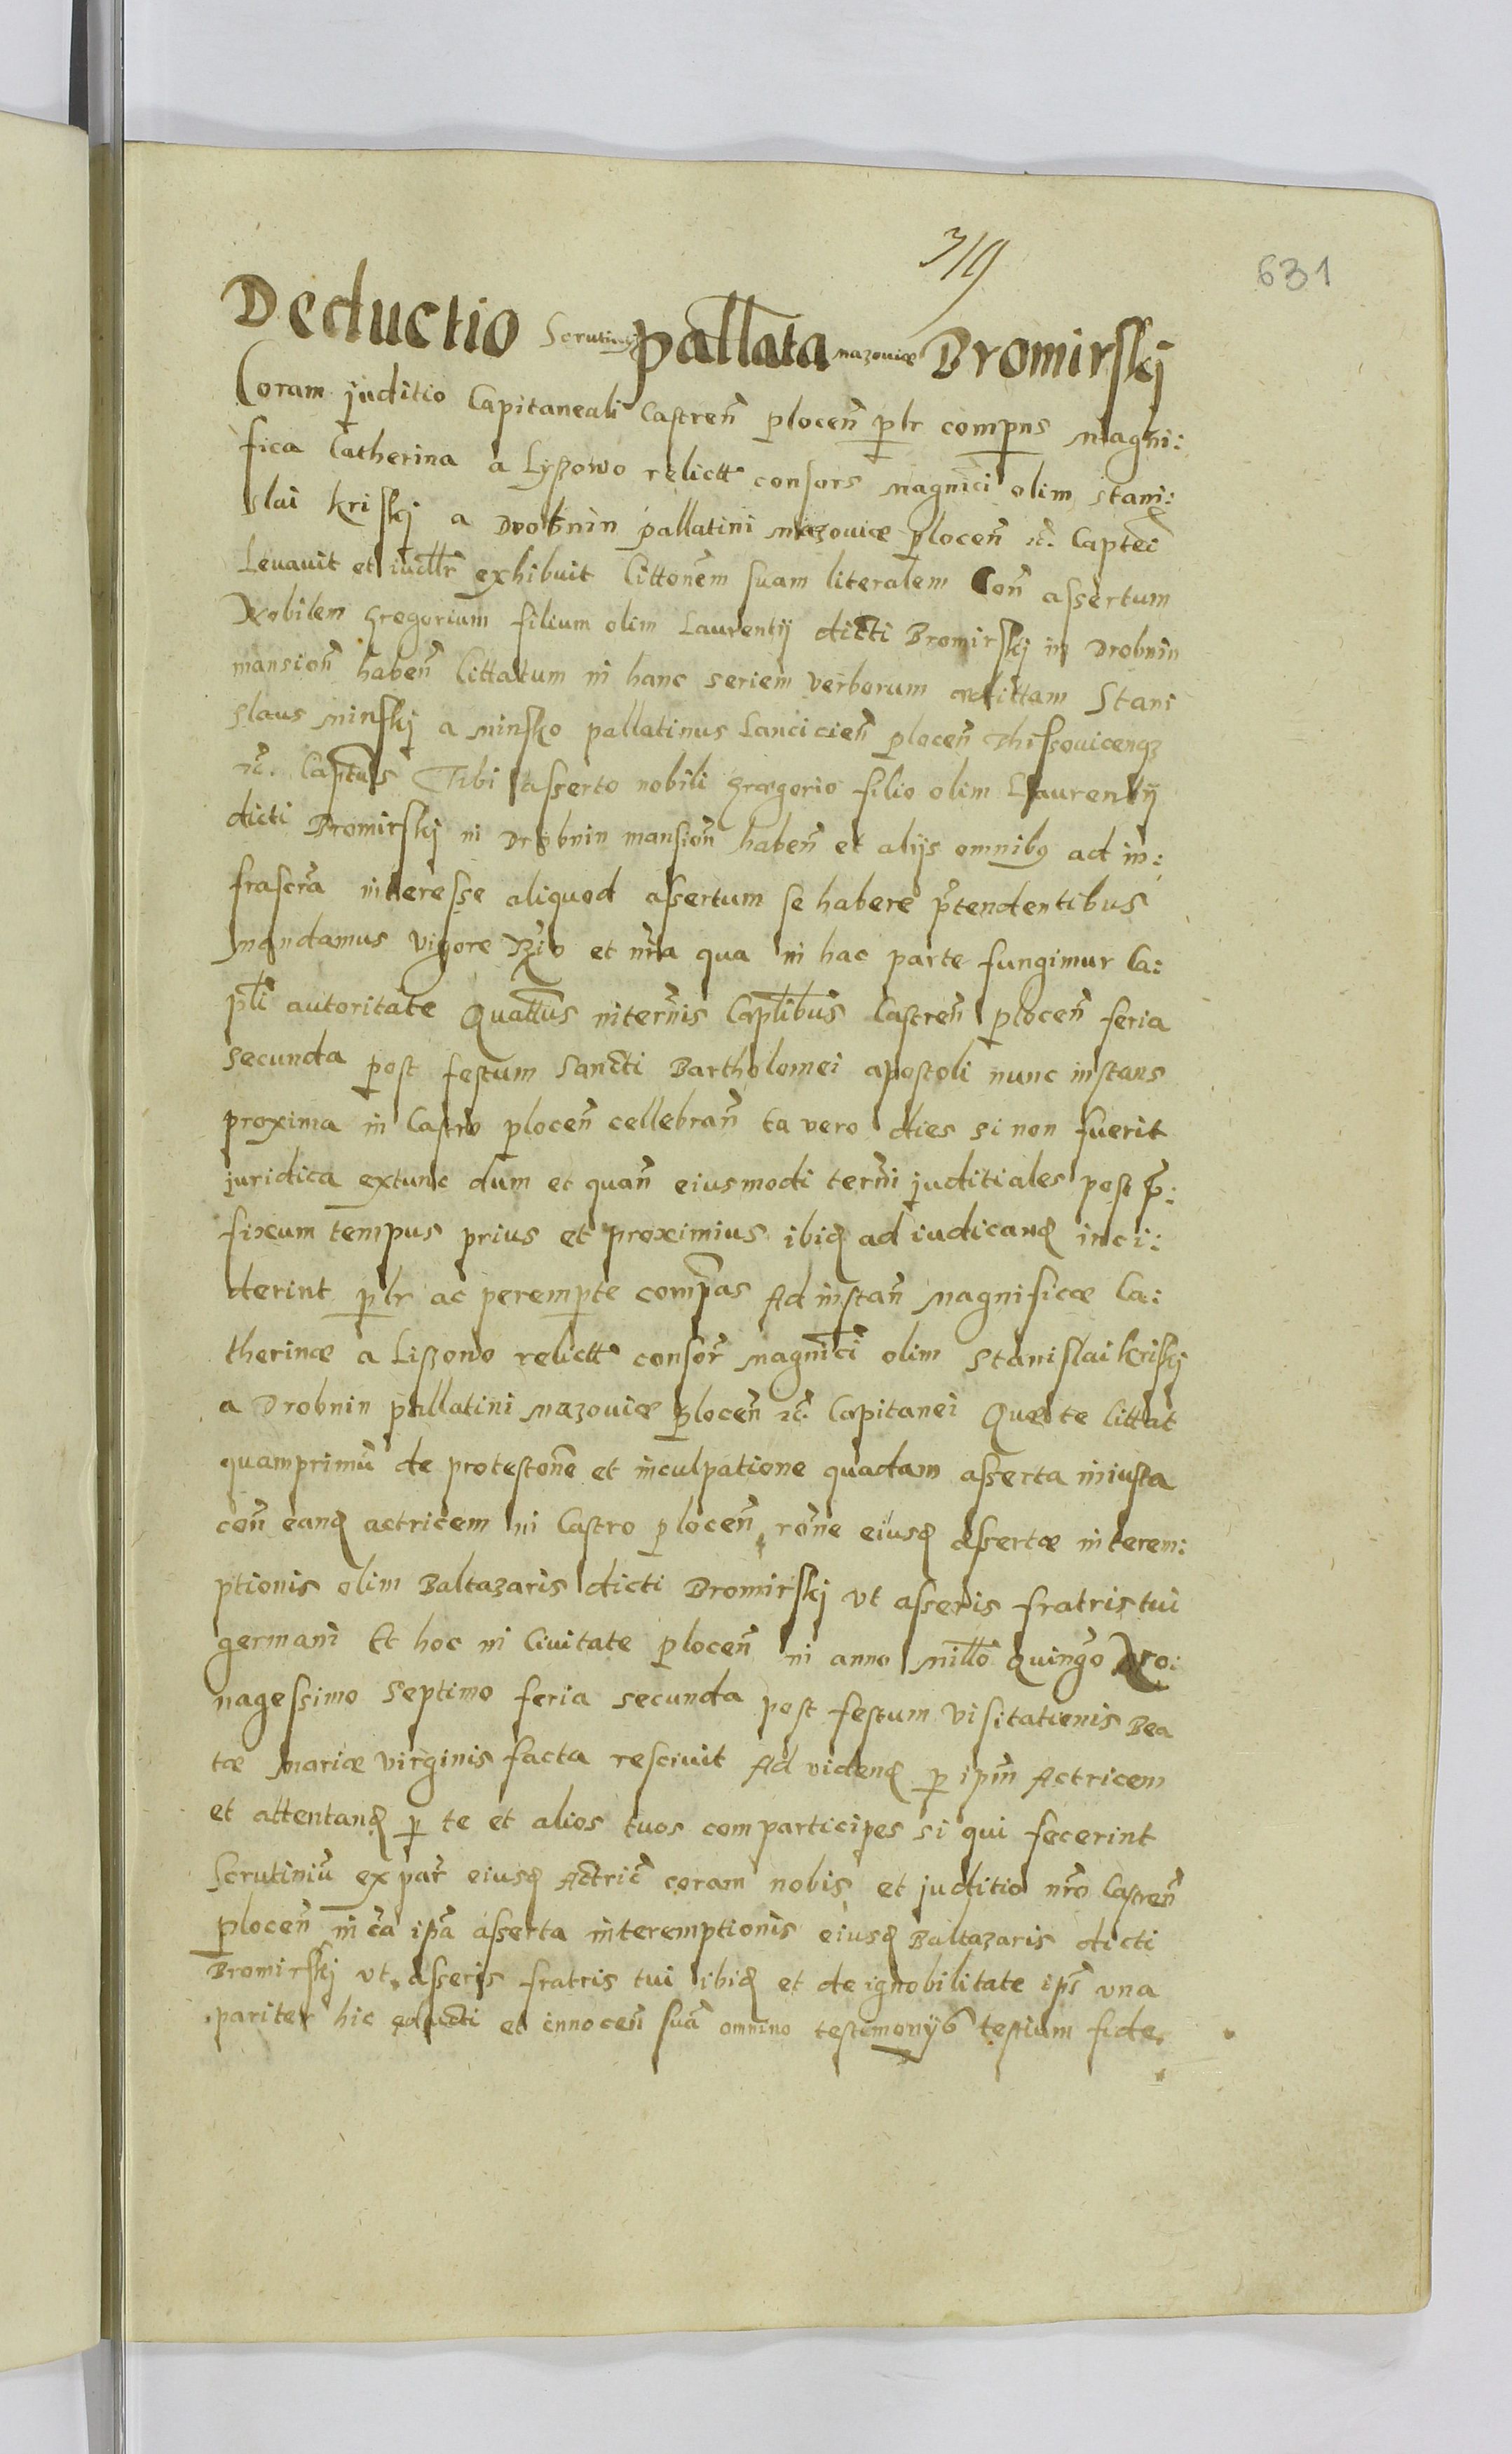 319
631
Deductio Scrutinij pallata mazouiæ Bromirskj
Coram juditio Capitaneali Castreñ plocen̄ plr̄ compn̄s Magni:
fica Catherina a Lyszowo relictᵃ consors magnici olim stani:
slai kriskj a Drobnin pallatini mazouiæ plocen̄ ēc. Capten̄
Leuauit et iudllr̄ exhibuit Cittonem suam literalem Con̄ assertum
Nobilem Gregorium filium olim Laurentij dicti Bromirskj in Drobnin
mansion̄ haben̄ Cittatum in hanc seriem verborum ædittam Stani
slaus minskj a minsko pallatinus Lancicien̄ plocen̄
ēc. Captn̄s Tibi asserto nobili Grægorio filio olim Laurentij
dicti Bromirskj in Drobnin mansion̄ haben̄ et alijs omnibꝰ ad in:
frascrā interesse aliquod assertum se habere p̄tendentibus
Mandamus vigore Rio et nr̄a qua in hac parte fungimur Ca:
pli autoritate Quattus in termis Caplibus Castren̄ plocen̄ feria
secunda post festum Sancti Bartholomei apostoli nunc instans
proxima in Castro plocen̄ cellebran̄ ea vero dies si non fuerit
juridica extunc dum et quan̄ eiusmodi termi juditiales post p̄:
fixum tempus prius et proximius ibiđ ad iudicanđ inci:
derint plr̄ ac perempte compas Ad instan̄ Magnificæ Ca:
therinæ a Liszowo relictᵃ consor̄ magnici olim Stanislai kriskj
a Drobnin pallatini mazouiæ plocen̄ ēc. Capitanei Quæ te cittat
quamprimū de protestone et inculpatione quadam asserta iniusta
con̄ eanđ actricem in Castro plocen̄ rone eiusđ assertæ interem:
ptionis olim Baltazaris dicti Bromirskj vt asseris fratris tui
germani Et hoc in Ciuitate plocen̄ in anno millo quingo No:
nagessimo Septimo feria secunda post festum visitationis Bea
tæ Mariæ virginis facta resciuit Ad videnđ p ipm̄ Actricem
et attentanđ p te et alios tuos comparticipes si qui fecerint
Scrutiniū ex par̄ eiusđ Actric̄ coram nobis et juditio nr̄o Castren̄
plocen̄ in cā ipā asserta interemptionis eiusđ Baltazaris dicti
Bromirskj vt asseris fratris tui ibiđ et de ignobilitate ips̄ vna
pariter hic educti et innocen̄ suā omnino testimonijs testium fide